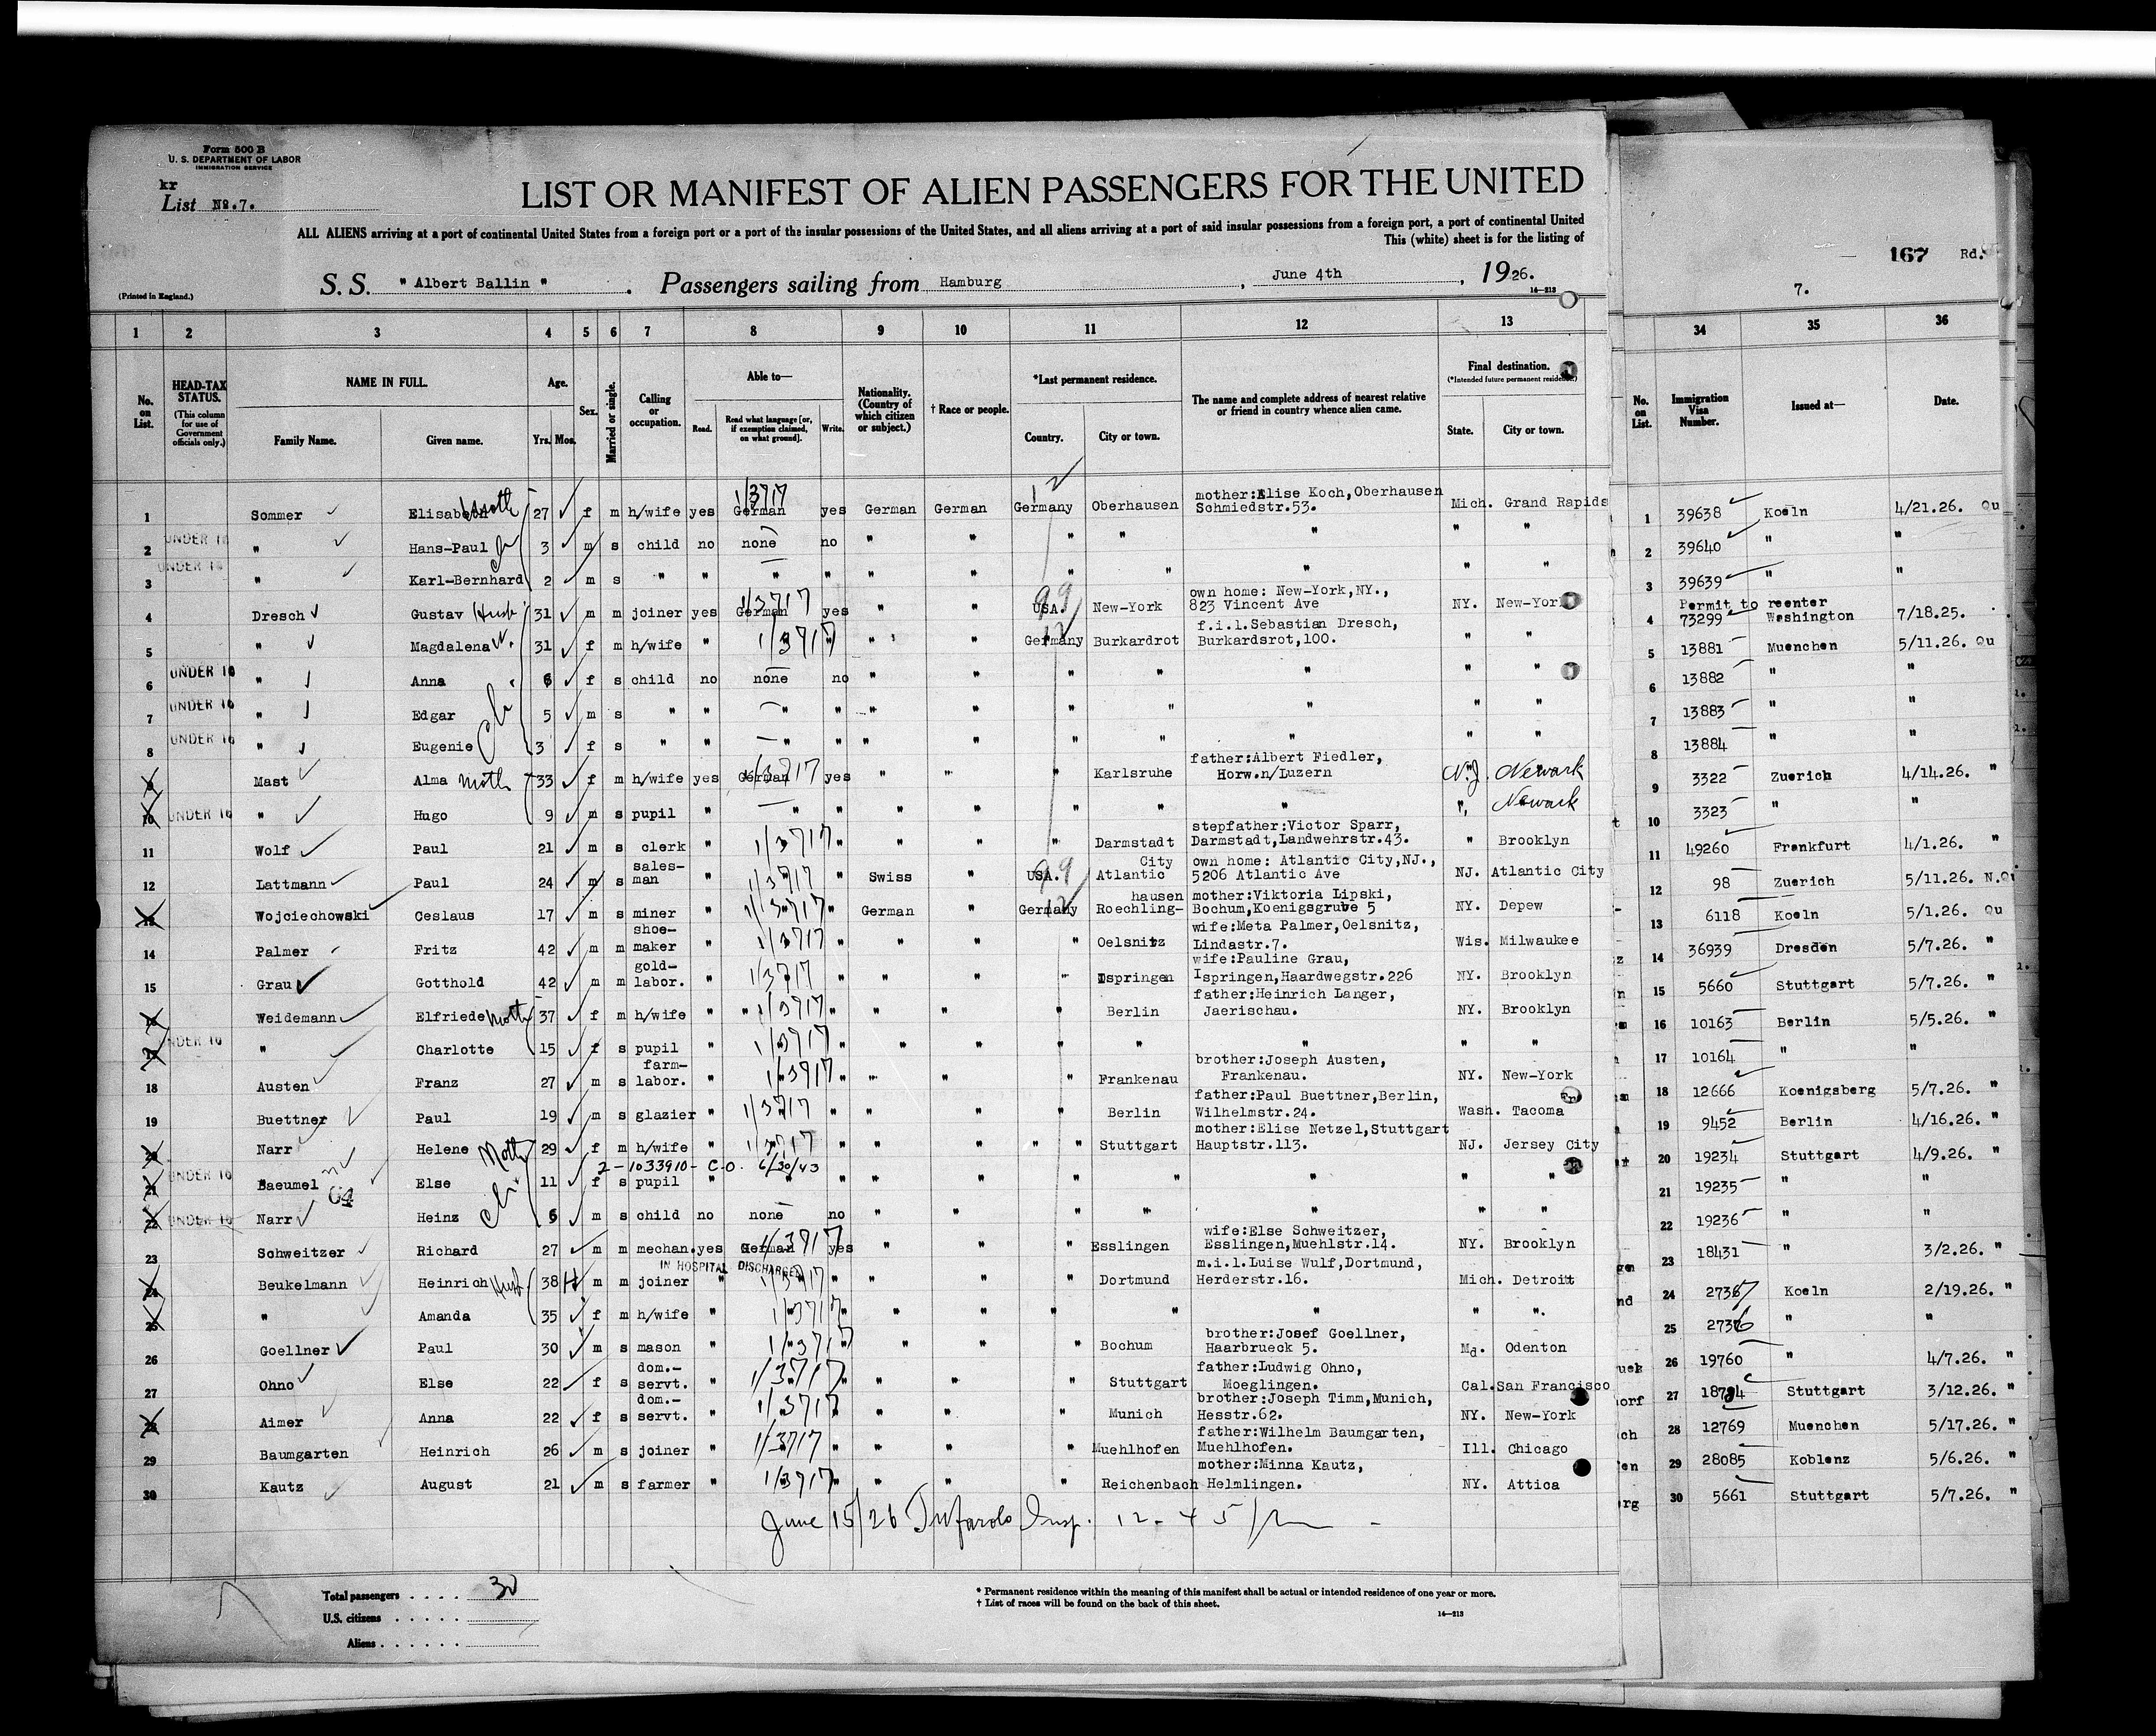 Form 500 B
U. S. DEPARTMENT OF LABOR
IMMIGRATION SERVICE
kr
List No.7.
LIST OR MANIFEST OF ALIEN PASSENGERS FOR THE UNITED
ALL ALIENS arriving at a port of continental United States from a foreign port or a port of the insular possessions of the United States, and all aliens arriving at a port of said insular possessions from a foreign port, a port of continental United
This (white) sheet is for the listing of
167 Rd.
(Printed in England.)
S. S. "Albert Ballin". Passengers sailing from Hamburg, June 4th, 1926.
14—213
7.
1 2 3 4 5 6 7 8 9 10 11 12 13 34 35 36
No. on List. HEAD-TAX STATUS. (This column for use of Government officials only.) NAME IN FULL. Family Name. Given name. Age. Yrs. Mos. Sex. Married or single. Calling or occupation. Able to— Read. Read what language [or, if exemption claimed, on what ground]. Write. Nationality. (Country of which citizen or subject.) † Race or people. *Last permanent residence. Country. City or town. The name and complete address of nearest relative or friend in country whence alien came. Final destination. (*Intended future permanent residence.) State. City or town. No. on List. Immigration Visa Number. Issued at— Date.
1 Sommer Elisabeth Moth 27 f m h/wife yes German 1/3717 yes German German Germany Oberhausen mother:Elise Koch,Oberhausen Schmiedstr.53. Mich. Grand Rapids 1 39638 Koeln 4/21.26. Qu
2 UNDER 16 " Hans-Paul 3 m s child no none no " " " " " " " 2 39640 " "
3 UNDER 16 " Karl-Bernhard 2 m s " " " " " " " " " " " 3 39639 " "
4 Dresch Gustav Husb 31 m m joiner yes German 1/3717 yes " " USA. 99 New-York own home: New-York,NY., 823 Vincent Ave NY. New-York 4 Permit to reenter 73299 Washington 7/18.25.
5 " Magdalena W. 31 f m h/wife " 1/3717 " " " Germany Burkardrot f.i.l.Sebastian Dresch, Burkardsrot,100. " " 5 13881 Muenchen 5/11.26. Qu
6 UNDER 16 " Anna 6 f s child no none no " " " " " " " 6 13882 " "
7 UNDER 16 " Edgar 5 m s " " " " " " " " " " " 7 13883 " "
8 UNDER 16 " Eugenie Ch 3 f s " " " " " " " " " " " 8 13884 " "
9 Mast Alma Moth 33 f m h/wife yes German 1/3717 yes " " " Karlsruhe father:Albert Fiedler, Horw.n/Luzern N.J. Newark 9 3322 Zuerich 4/14.26. "
10 UNDER 16 " Hugo 9 m s pupil " " " " " " " " " Newark 10 3323 " "
11 Wolf Paul 21 m s clerk " 1/3717 " " " " Darmstadt stepfather:Victor Sparr, Darmstadt,Landwehrstr.43. " Brooklyn 11 49260 Frankfurt 4/1.26. "
12 Lattmann Paul 24 m s sales-man " 1/3717 " Swiss " USA. 99 Atlantic City own home: Atlantic City,NJ., 5206 Atlantic Ave NJ. Atlantic City 12 98 Zuerich 5/11.26. N.Qu
13 Wojciechowski Ceslaus 17 m s miner " 1/3717 " German " Germany Roechling-hausen mother:Viktoria Lipski, Bochum,Koenigsgrube 5 NY. Depew 13 6118 Koeln 5/1.26. Qu
14 Palmer Fritz 42 m m shoe-maker " 1/3717 " " " " Oelsnitz wife:Meta Palmer,Oelsnitz, Lindastr.7. Wis. Milwaukee 14 36939 Dresden 5/7.26. "
15 Grau Gotthold 42 m m gold-labor. " 1/3717 " " " " Ispringen wife:Pauline Grau, Ispringen,Haardwegstr.226 NY. Brooklyn 15 5660 Stuttgart 5/7.26. "
16 Weidemann Elfriede Moth 37 f m h/wife " 1/3717 " " " " Berlin father:Heinrich Langer, Jaerischau. NY. Brooklyn 16 10163 Berlin 5/5.26. "
17 UNDER 16 " Charlotte 15 f s pupil " 1/3717 " " " " " " " " 17 10164 " "
18 Austen Franz 27 m s farm-labor. " 1/3717 " " " " Frankenau brother:Joseph Austen, Frankenau. NY. New-York 18 12666 Koenigsberg 5/7.26. "
19 Buettner Paul 19 m s glazier " 1/3717 " " " " Berlin father:Paul Buettner,Berlin, Wilhelmstr.24. Wash. Tacoma 19 9452 Berlin 4/16.26. "
20 Narr Helene Moth 29 f m h/wife " 1/3717 " " " " " Stuttgart mother:Elise Netzel,Stuttgart Hauptstr.113. NJ. Jersey City 20 19234 Stuttgart 4/9.26. "
2-1033910- C.O. 6/30/43
21 UNDER 16 Baeumel Else 11 f s pupil " " " " " " " " " " 21 19235 " "
22 UNDER 16 Narr Heinz Ch 6 m s child no none no " " " " " " " 22 19236 " "
23 Schweitzer Richard 27 m m mechan. yes German 1/3717 yes " " " Esslingen wife:Else Schweitzer, Esslingen,Muehlstr.14. NY. Brooklyn 23 18431 " 3/2.26. "
IN HOSPITAL DISCHARGED
24 Beukelmann Heinrich Husb 38 m m joiner " 1/3717 " " " " Dortmund m.i.l.Luise Wulf,Dortmund, Herderstr.16. Mich. Detroit 24 27367 Koeln 2/19.26. "
25 " Amanda 35 f m h/wife " 1/3717 " " " " " " " ". 25 2736 " "
26 Goellner Paul 30 m s mason " 1/3717 " " " " Bochum brother:Josef Goellner, Haarbrueck 5. Md. Odenton 26 19760 " 4/7.26. "
27 Ohno Else 22 f s dom.-servt. " 1/3717 " " " " Stuttgart father:Ludwig Ohno, Moeglingen. Cal. San Francisco 27 18794 Stuttgart 3/12.26. "
28 Aimer Anna 22 f s dom.-servt. " 1/3717 " " " " Munich brother:Joseph Timm,Munich, Hesstr.62. NY. New-York 28 12769 Muenchen 5/17.26. "
29 Baumgarten Heinrich 26 m s joiner " 1/3717 " " " " Muehlhofen father:Wilhelm Baumgarten, Muehlhofen. Ill. Chicago 29 28085 Koblenz 5/6.26. "
30 Kautz August 21 m s farmer " 1/3717 " " " " Reichenbach mother:Minna Kautz, Helmlingen. NY. Attica 30 5661 Stuttgart 5/7.26. "
June 15/26 Insp. 12-45
Total passengers . . . . 30
U.S. citizens . . . . .
Aliens . . . . . .
* Permanent residence within the meaning of this manifest shall be actual or intended residence of one year or more.
† List of races will be found on the back of this sheet.
14—213